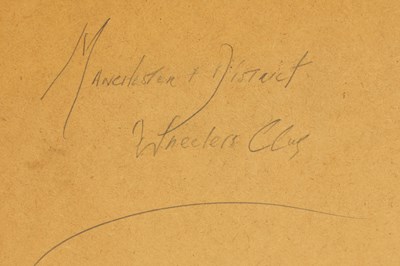 Manchester & District
Wheelers Club